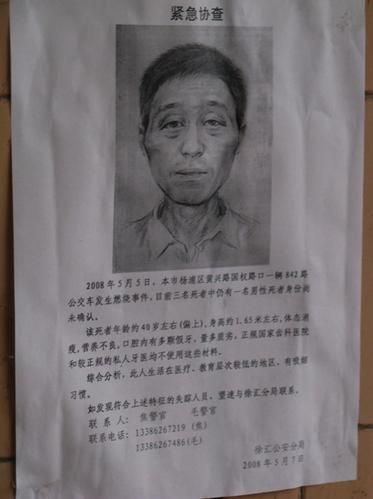 紧急协查
2008年5月5日，本市杨浦区黄兴路国权路口一辆842路
公交车发生燃烧事件，目前三名死者中仍有一名男性死者身份尚
未确认。
该死者年龄约40岁左右(偏上)，身高约1.65米左右，体态消
瘦，营养不良，口腔内有多颗假牙，量多质劣，正规国家齿科医院
和较正规的私人牙医均不使用这些材料。
综合分析，此人生活在医疗、教育层次较低的地区，有吸烟
习惯。
如发现符合上述特征的失踪人员，望速与徐汇分局联系。
联系人：焦警官 毛警官
联系电话：13386267219（焦）
13386267486(毛)
徐汇公安分局
2008年5月7日